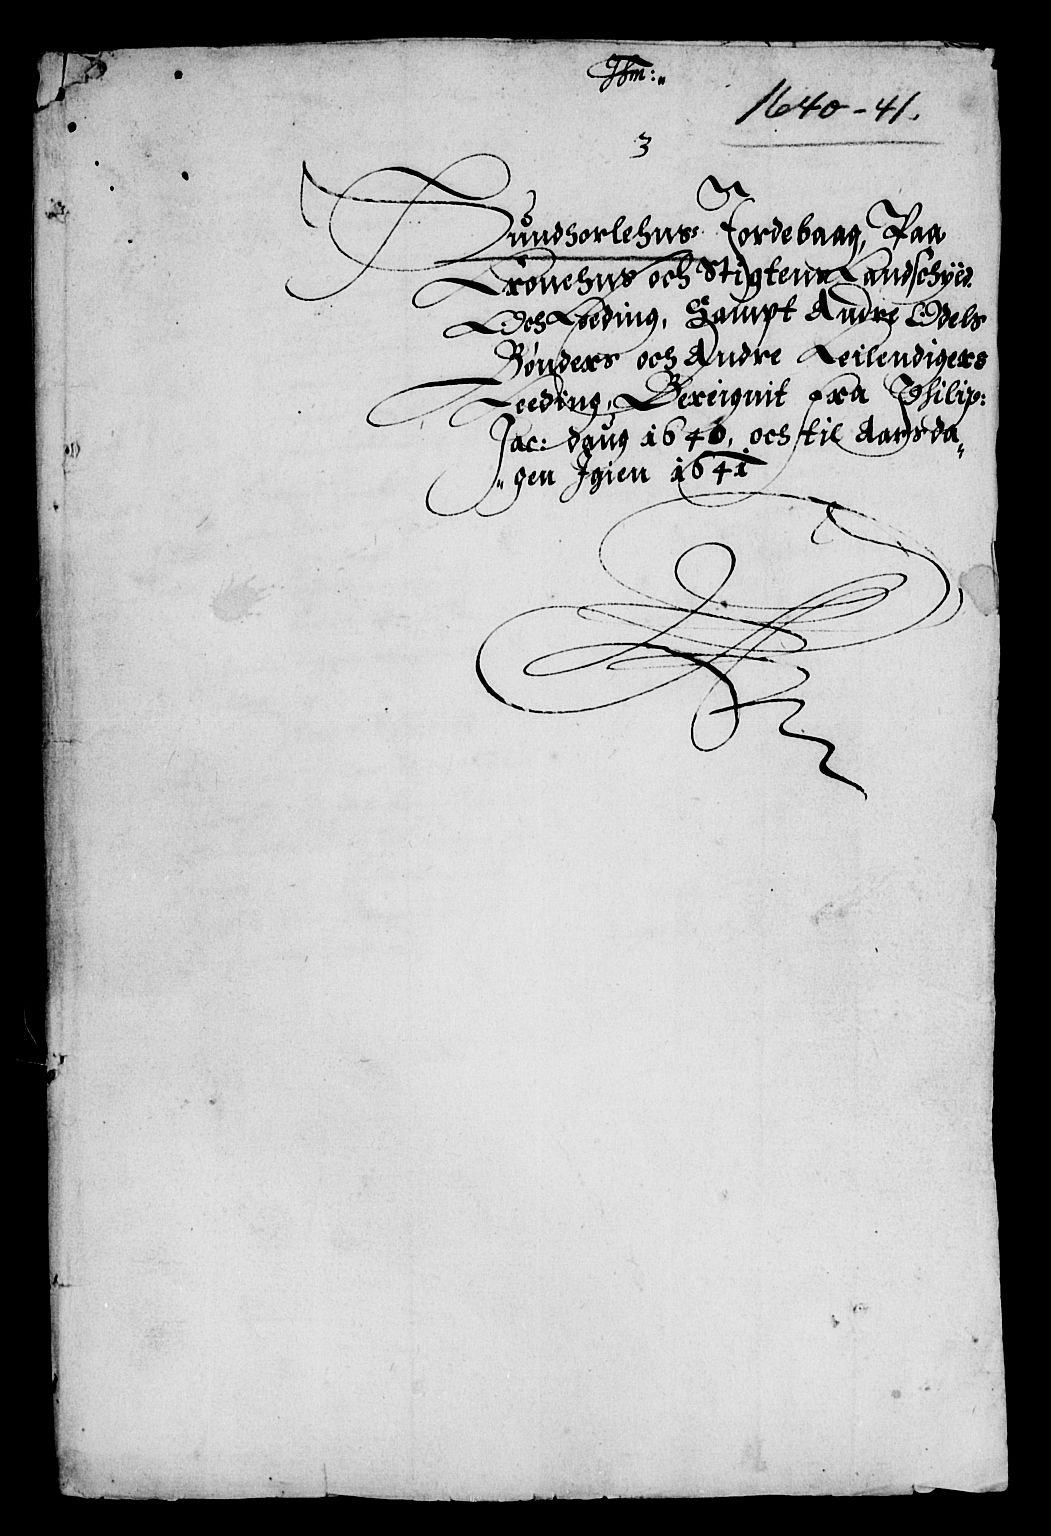 1640-41.
3
Sundhorlehns Jordebaag, Paa
Cronehns och Stigtenn Landschÿld
Och Leeding, Sampt Andre Odels
Bönders och Andre Leilendigers
Leeding, Bereignit fra Philip:
Jac: daug 1640, och til Aarsda„
„gen Igien 1641